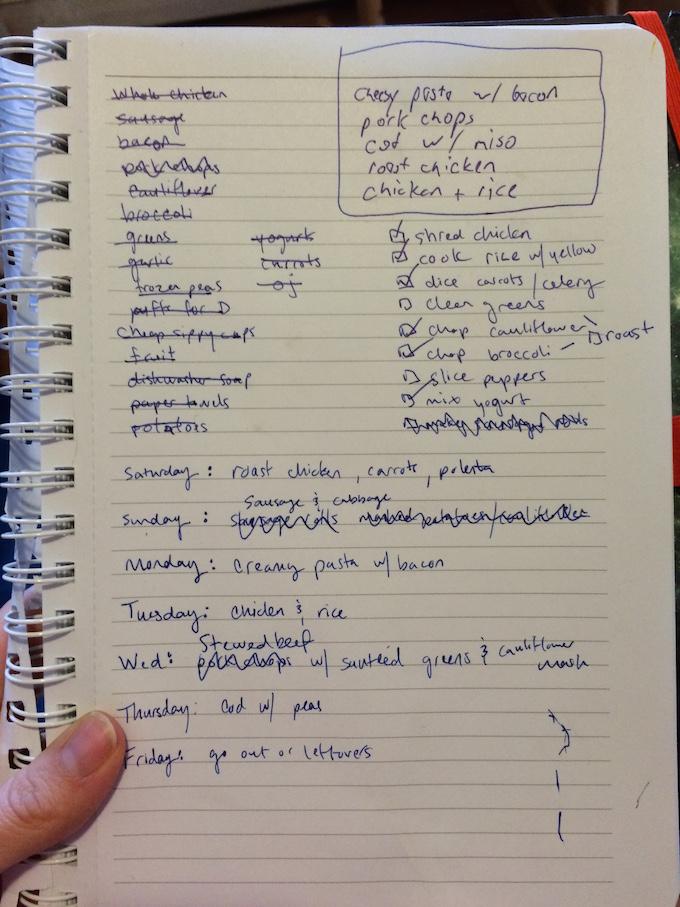 cheesy pasta w/ bacon
pork chops
cod w/ miso
roast chicken
chicken + rice
whole chicken
sausage
bacon
pork chops
cauliflower
broccoli
greens
garlic
frozen peas
puffs for D
cheap sippy cups
fruit
dishwasher soap
paper towels
potatoes
yogurt
carrots
oj
shred chicken
cook rice w/ yellow
dice carrots / celery
clean greens
chop cauliflower
chop broccoli - roast
slice peppers
mix yogurt
Saturday: roast chicken, carrots, polenta
Sausage & cabbage
Sunday: sausage mashed potatoes/cauliflower
Monday: creamy pasta w/ bacon
Tuesday: chicken & rice
Stewed beef
Wed: pork chops w/ sauteed greens & cauliflower
mash
Thursday: Cod w/ peas
Friday: go out or leftovers